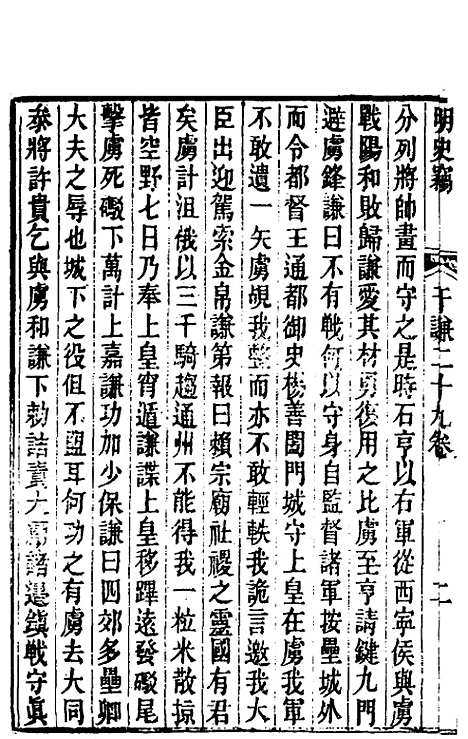 明史竊 于謙二十九卷 二
分列將帥畫而守之是時石亨以右軍從西寧侯與虜
戰陽和敗歸謙愛其材勇復用之比虜至亨請鍵九門
避虜鋒謙曰不有戰何以守身自監督諸軍按壘城外
而令都督王通都御史楊善闔門城守上皇在虜我軍
不敢遺一矢虜覘我整而亦不敢輕軼我詭言邀我大
臣出迎駕索金帛謙第報曰賴宗廟社稷之靈國有君
矣虜計沮俄以三千騎趨通州不能得我一粒米散掠
皆空野七日乃奉上皇宵遁謙諜上皇移蹕遠發礮尾
擊虜死礮下萬計上嘉謙功加少保謙曰四郊多壘卿
大夫之辱也城下之役但不盟耳何功之有虜去大同
叅將許貴乞與虜和謙下勑詰責大爲諸邊鎮戰守眞